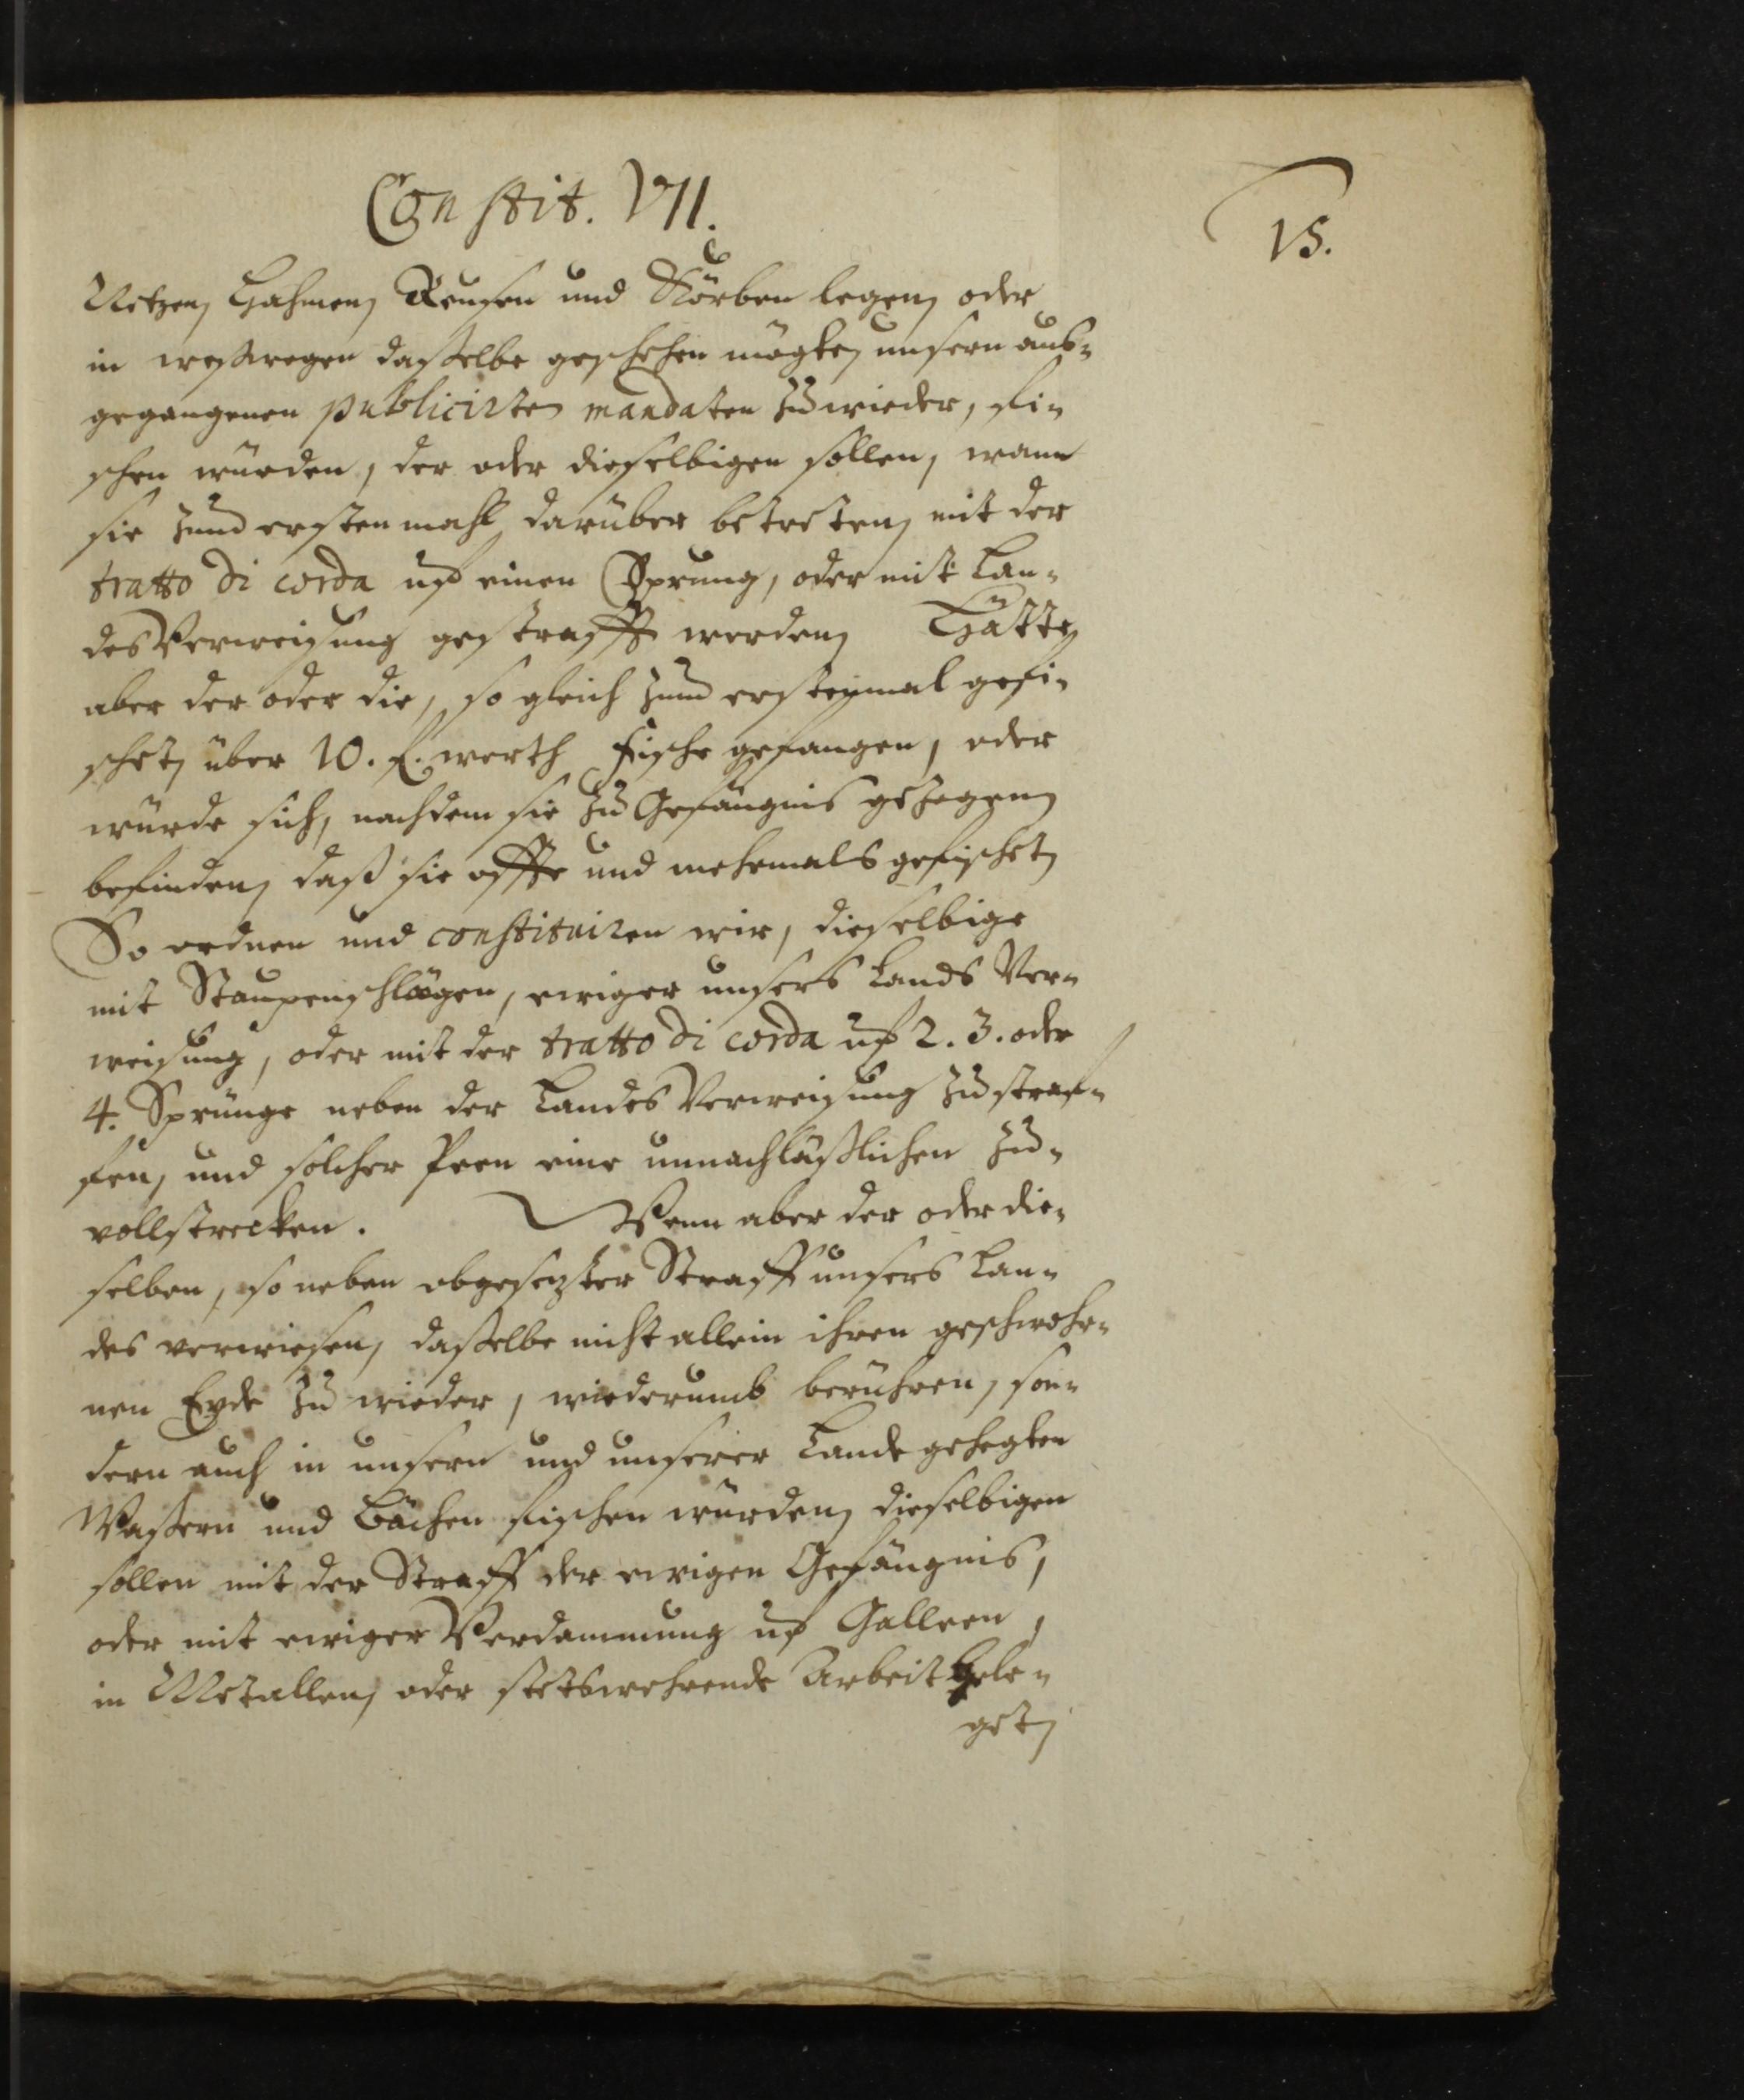 Constit. VII.
15.
Netzen, Hahmen, Reusen und Körben legen, oder
in weßwegen daßelbe geschehen mögte, unsern aus-
gegangenen publicirten mandaten zuwieder, fi-
schen würden, der oder dieselbigen sollen, wann
sie zum erstenmahl darüber betreten, mit der
tratto di corda uf einen Sprung, oder mit Lan-
des Verweisung gestrafft werden, Hätte
aber der oder die, so gleich zum erstenmal gefi-
schet, über 10. f. werth Fische gefangen, oder
würde sich, nachdem sie zu Gefängnis gezogen
befinden, daß sie offte und mehrmals gefischet,
So ordnen und constituiren wir, dieselbige
mit Staupenschlägen, ewiger unsers Lands Ver-
weisung, oder mit der tratto di corda uf 2. 3. oder
4. Sprünge neben der Landes Verweisung zu straf-
fen, und solcher Peen eine unnachläßlichen zu-
vollstrecken. Wenn aber der oder die-
selben, so neben obgesezter Straff unsers Lan-
des verwiesen, daßelbe nicht allein ihren geschwohr-
nen Eyde zu wieder, wiederumb berühren, son-
dern auch in unsern und unserer Lande gehegten
Waßern und Bächen fischen würden, dieselbigen
sollen mit der Straff der ewigen Gefängnis,
oder mit ewiger Verdammung uf Galleen,
in Metallen, oder stetswehrende Arbeit bele-
get,